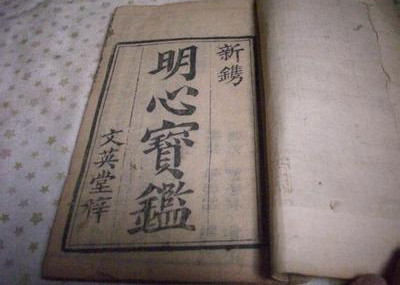 新鐫
明心寶鑑
文英堂梓